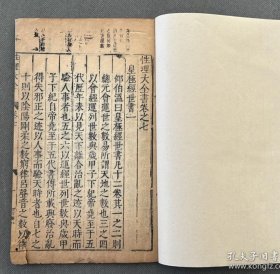 性理大全書卷之七
皇極經世書一
邵伯溫曰皇極經世書凡十二卷其一之二則
總元會運世之數易所謂天地之數也三之四
以會經運列世數與歲甲子下紀帝堯至于五
代歷年表以見天下離合治亂之迹以天時而
驗人事者也五之六以運經世列世數與歲甲
子下紀自帝堯至于五代書傳所載興廢治亂
得失邪正之迹以人事而驗天時者也自七之
十則以陰陽剛柔之數窮律呂聲音之數以律